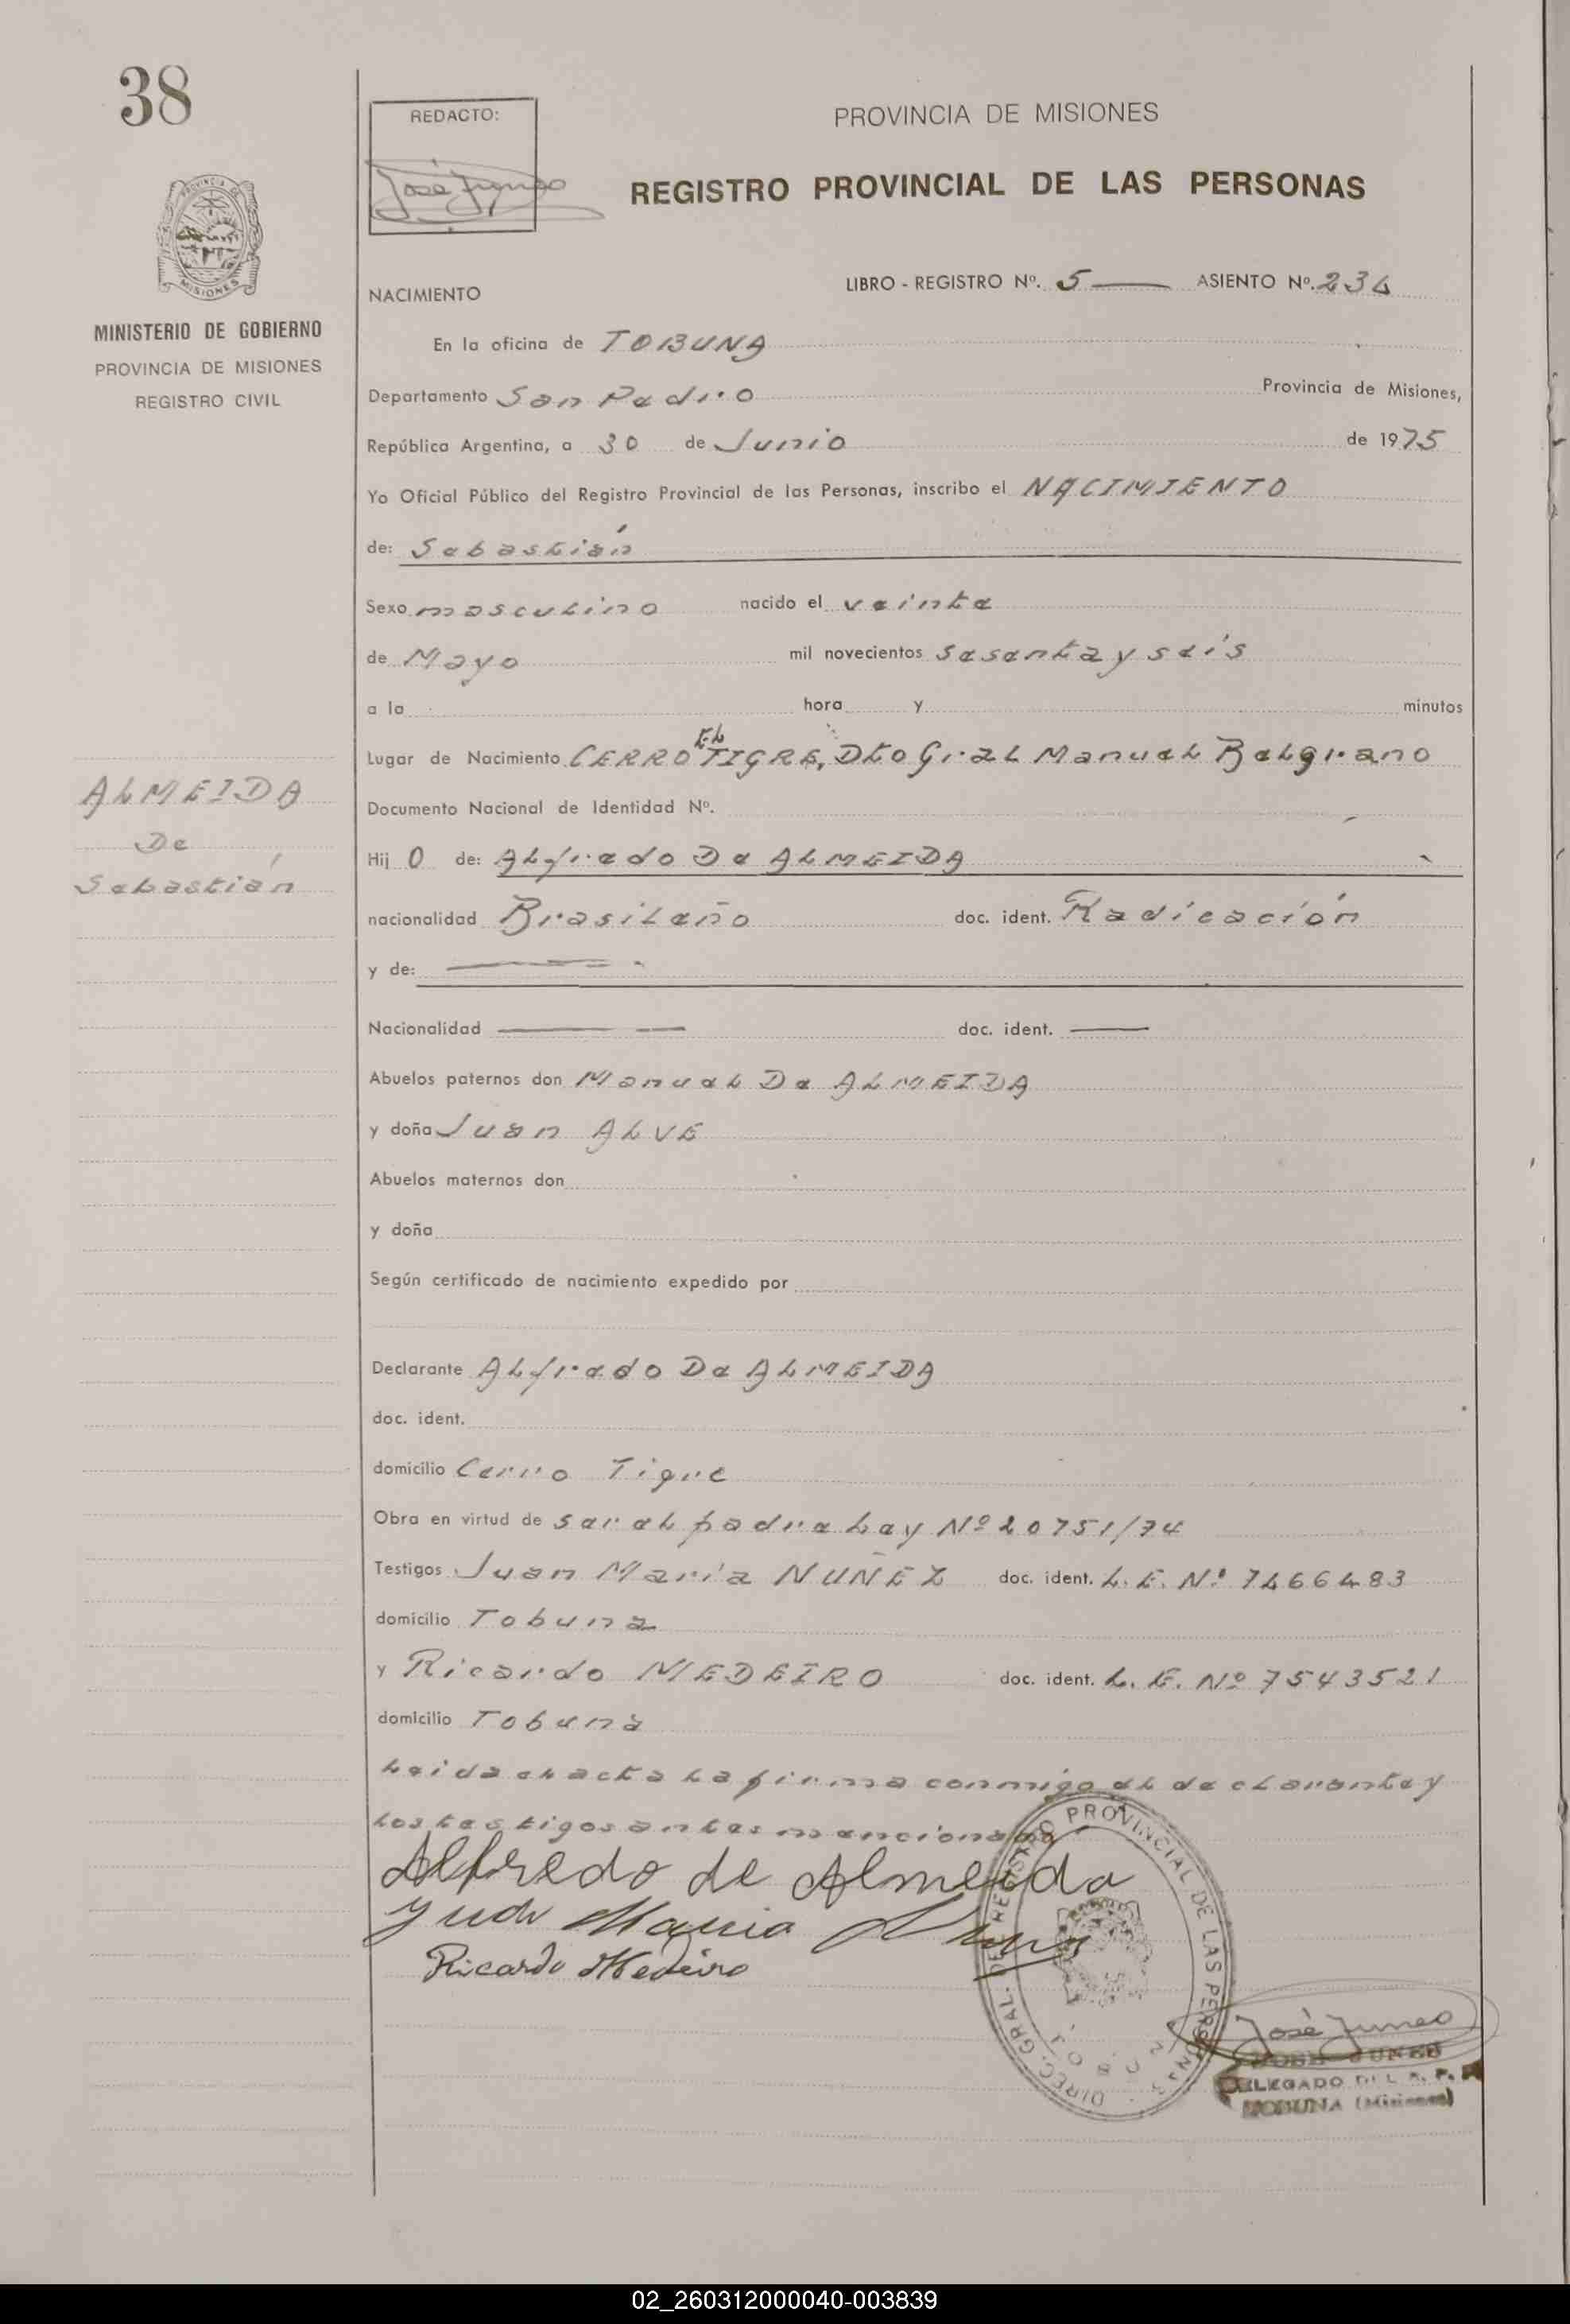 38
REDACTO:
José Juneo
PROVINCIA DE MISIONES
REGISTRO PROVINCIAL DE LAS PERSONAS
MISIONES
MINISTERIO DE GOBIERNO
PROVINCIA DE MISIONES
REGISTRO CIVIL
NACIMIENTO
LIBRO - REGISTRO Nº. 5 — ASIENTO Nº. 234
En la oficina de TOBUNA
Departamento San Pedro Provincia de Misiones,
República Argentina, a 30 de Junio de 1975
Yo Oficial Público del Registro Provincial de las Personas, inscribo el NACIMIENTO
de: Sebastián
Sexo masculino nacido el veinte
de Mayo mil novecientos sesenta y seis
a la hora y minutos
Lugar de Nacimiento CERRO EL TIGRE, Dto Gral Manuel Belgrano
ALMEIDA
De
Sebastián
Documento Nacional de Identidad Nº.
Hij O de: ALfredo De ALMEIDA
nacionalidad Brasileño doc. ident. Radicación
y de: ———
Nacionalidad ——— — doc. ident. ———
Abuelos paternos don Manuel De ALMEIDA
y doña Juan ALVE
Abuelos maternos don
y doña
Según certificado de nacimiento expedido por
Declarante ALfredo De ALMEIDA
doc. ident.
domicilio Cerro Tigre
Obra en virtud de ser el padre Ley Nº 20751/74
Testigos Juan María NUÑEZ doc. ident. L. E. Nº 7466483
domicilio Tobuna
y Ricardo MEDEIRO doc. ident. L. E. Nº 7543521
domicilio Tobuna
Leida el acta La firma conmigo el declarante y
Los testigos antes mencionado
Alfredo de Almeida
Maria
Ricardo Medeiro
DIREC. GRAL. DEL REGISTRO PROVINCIAL DE LAS PERSONAS
José Juneo
JOSE JUNEO
DELEGADO DEL R. P. P.
TOBUNA (Misiones)
02_260312000040-003839